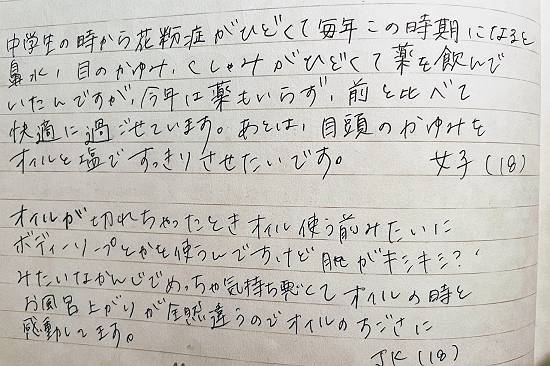 中学生の時から花粉症がひどくて毎年この時期になると
鼻水、目のかゆみ、くしゃみがひどくて薬を飲んで
いたんですが、今年は薬もいらず、前と比べて
快適に過ごせています。あとは、目頭のかゆみを
オイルと塩ですっきりさせたいです。 女子(18)
オイルが切れちゃったときオイル使う前みたいに
ボディーソープとかを使うんですけど肌がキシキシ?
みたいなかんじでめっちゃ気持ち悪くてオイルの時と
お風呂上がりが全然違うのでオイルのすごさに
感動してます。 JK(18)